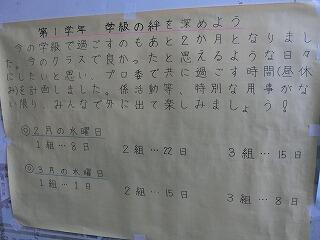 第1学年 学級の絆を深めよう
今の学級で過ごすのもあと2か月となりまし
た。今のクラスで良かったと思えるような日々
にしたいと思い、プロ委で共に過ごす時間(昼休
み)を計画しました。係活動等、特別な用事がな
い限り、みんなで外に出て楽しみましょう!
◎2月の水曜日
1組…8日 2組…22日 3組…15日
◎3月の水曜日
1組…1日 2組…15日 3組…8日